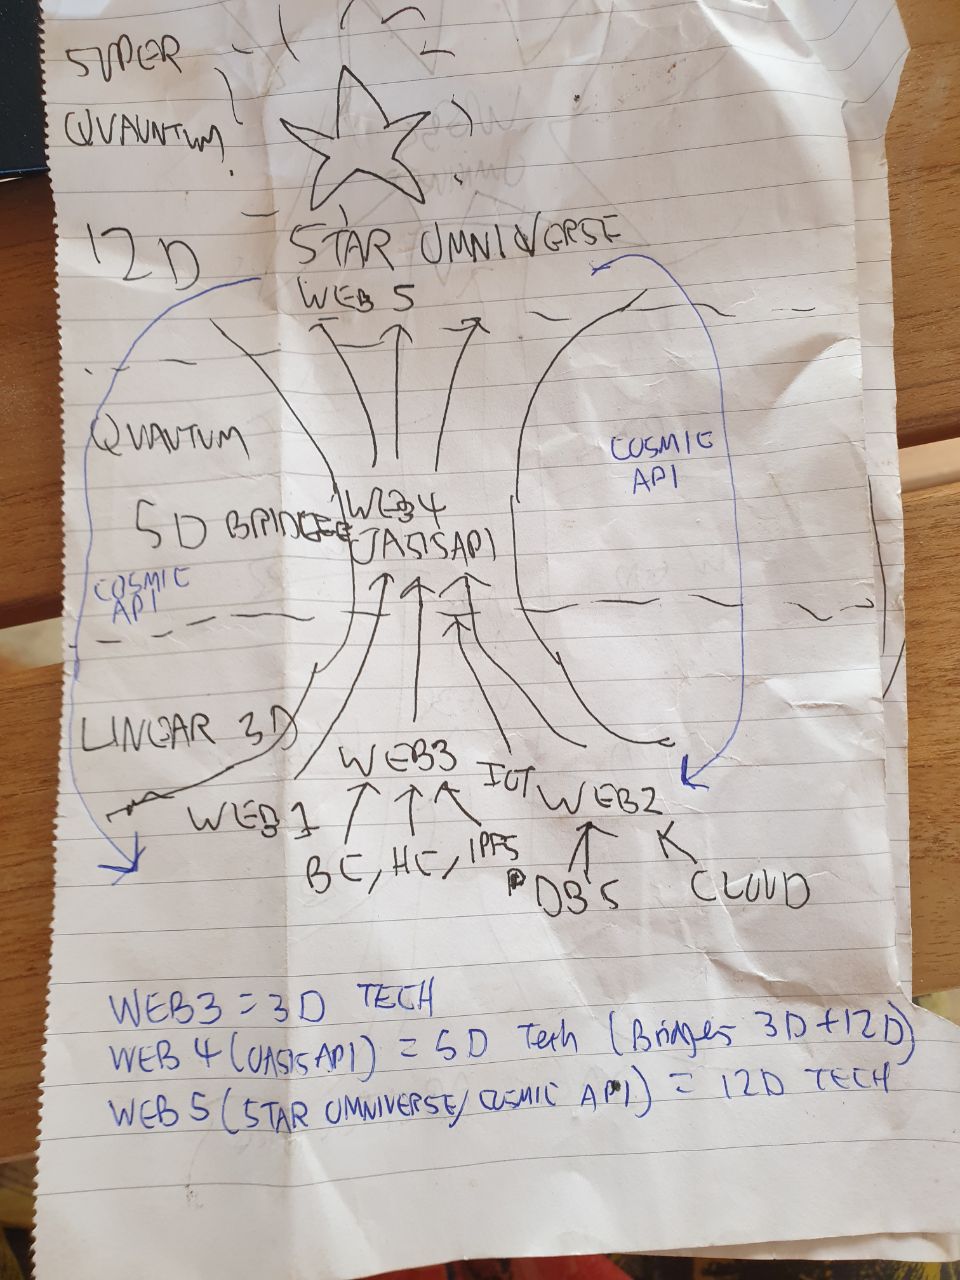 SUPER
QUAUNTUM
12D
STAR OMNIVERSE
WEB 5
QUANTUM
COSMIC
API
5D BRIDGE
WEB4
OASISAPI
COSMIC
API
LINEAR 3D
WEB3
IOT
WEB1
WEB2
BC, HC, IPFS
DB'S
CLOUD
WEB3 = 3D TECH
WEB 4 (OASISAPI) = 5D Tech (Bridges 3D+12D)
WEB 5 (STAR OMNIVERSE/COSMIC API) = 12D TECH